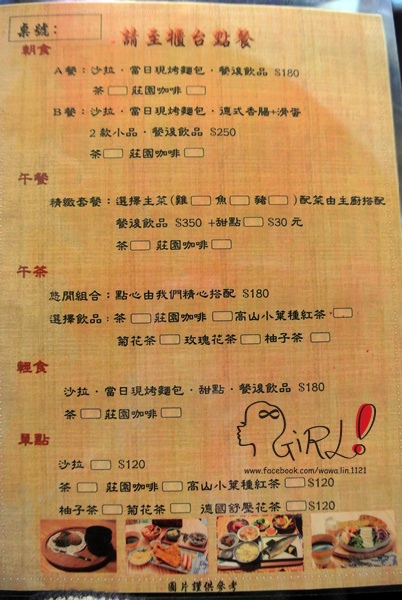 桌號:
請至櫃台點餐
朝食
A餐：沙拉．當日現烤麵包．餐後飲品 $180
茶 莊園咖啡
B餐：沙拉．當日現烤麵包．德式香腸+滑蛋
2款小品．餐後飲品 $250
茶 莊園咖啡
午餐
精緻套餐：選擇主菜(雞 魚 豬 )配菜由主廚搭配
餐後飲品 $350 +甜點 $30元
茶 莊園咖啡
午茶
悠閒組合：點心由我們精心搭配 $180
選擇飲品：茶 莊園咖啡 高山小葉種紅茶
菊花茶 玫瑰花茶 柚子茶
輕食
沙拉．當日現烤麵包．甜點．餐後飲品 $180
茶 莊園咖啡
GiRL!
www.facebook.com/wawa.lin.1121
單點
沙拉 $120
茶 莊園咖啡 高山小葉種紅茶 $120
柚子茶 菊花茶 德國舒壓花茶 $120
圖片謹供參考